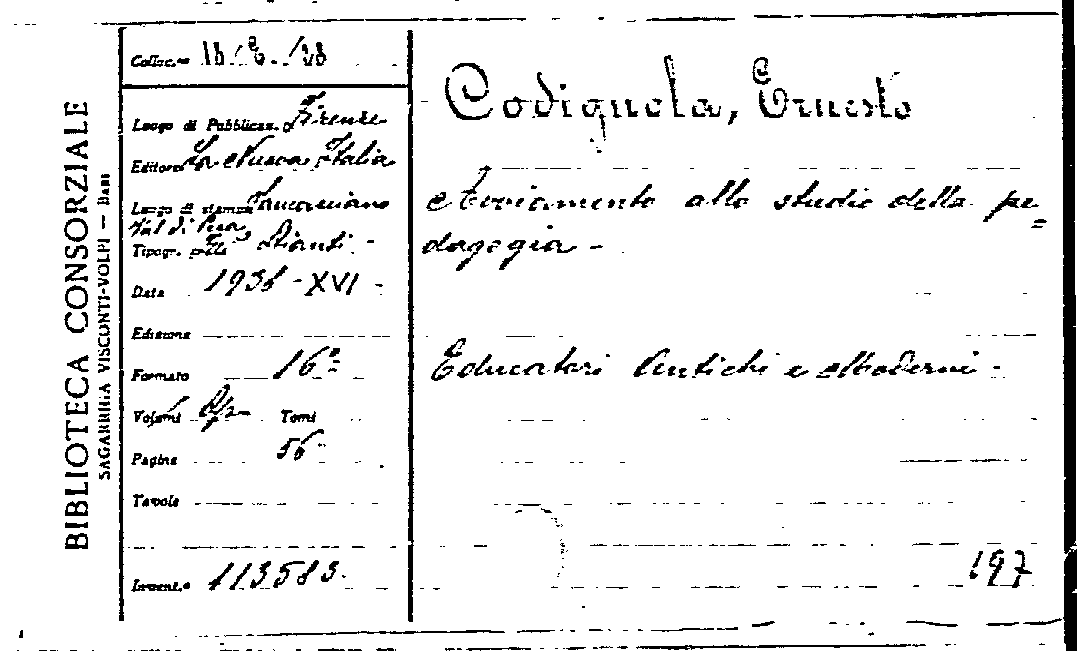 BIBLIOTECA CONSORZIALE
SAGARRIGA VISCONTI-VOLPI — BARI
Colloc.ne
Luogo di Pubblicaz. Firenze
Editore La Nuova Italia
Luogo di stampa Sancasciano
Val di Pesa
Tipogr. F.lli Stianti -
Data 1938 - XVI -
Edizione
Formato 16°
Volumi Op. Tomi
Pagine 56
Tavole
Invent.° 113583.
Codignola, Ernesto
Avviamento allo studio della pe=
dagogia -
Educatori Antichi e Moderni -
197